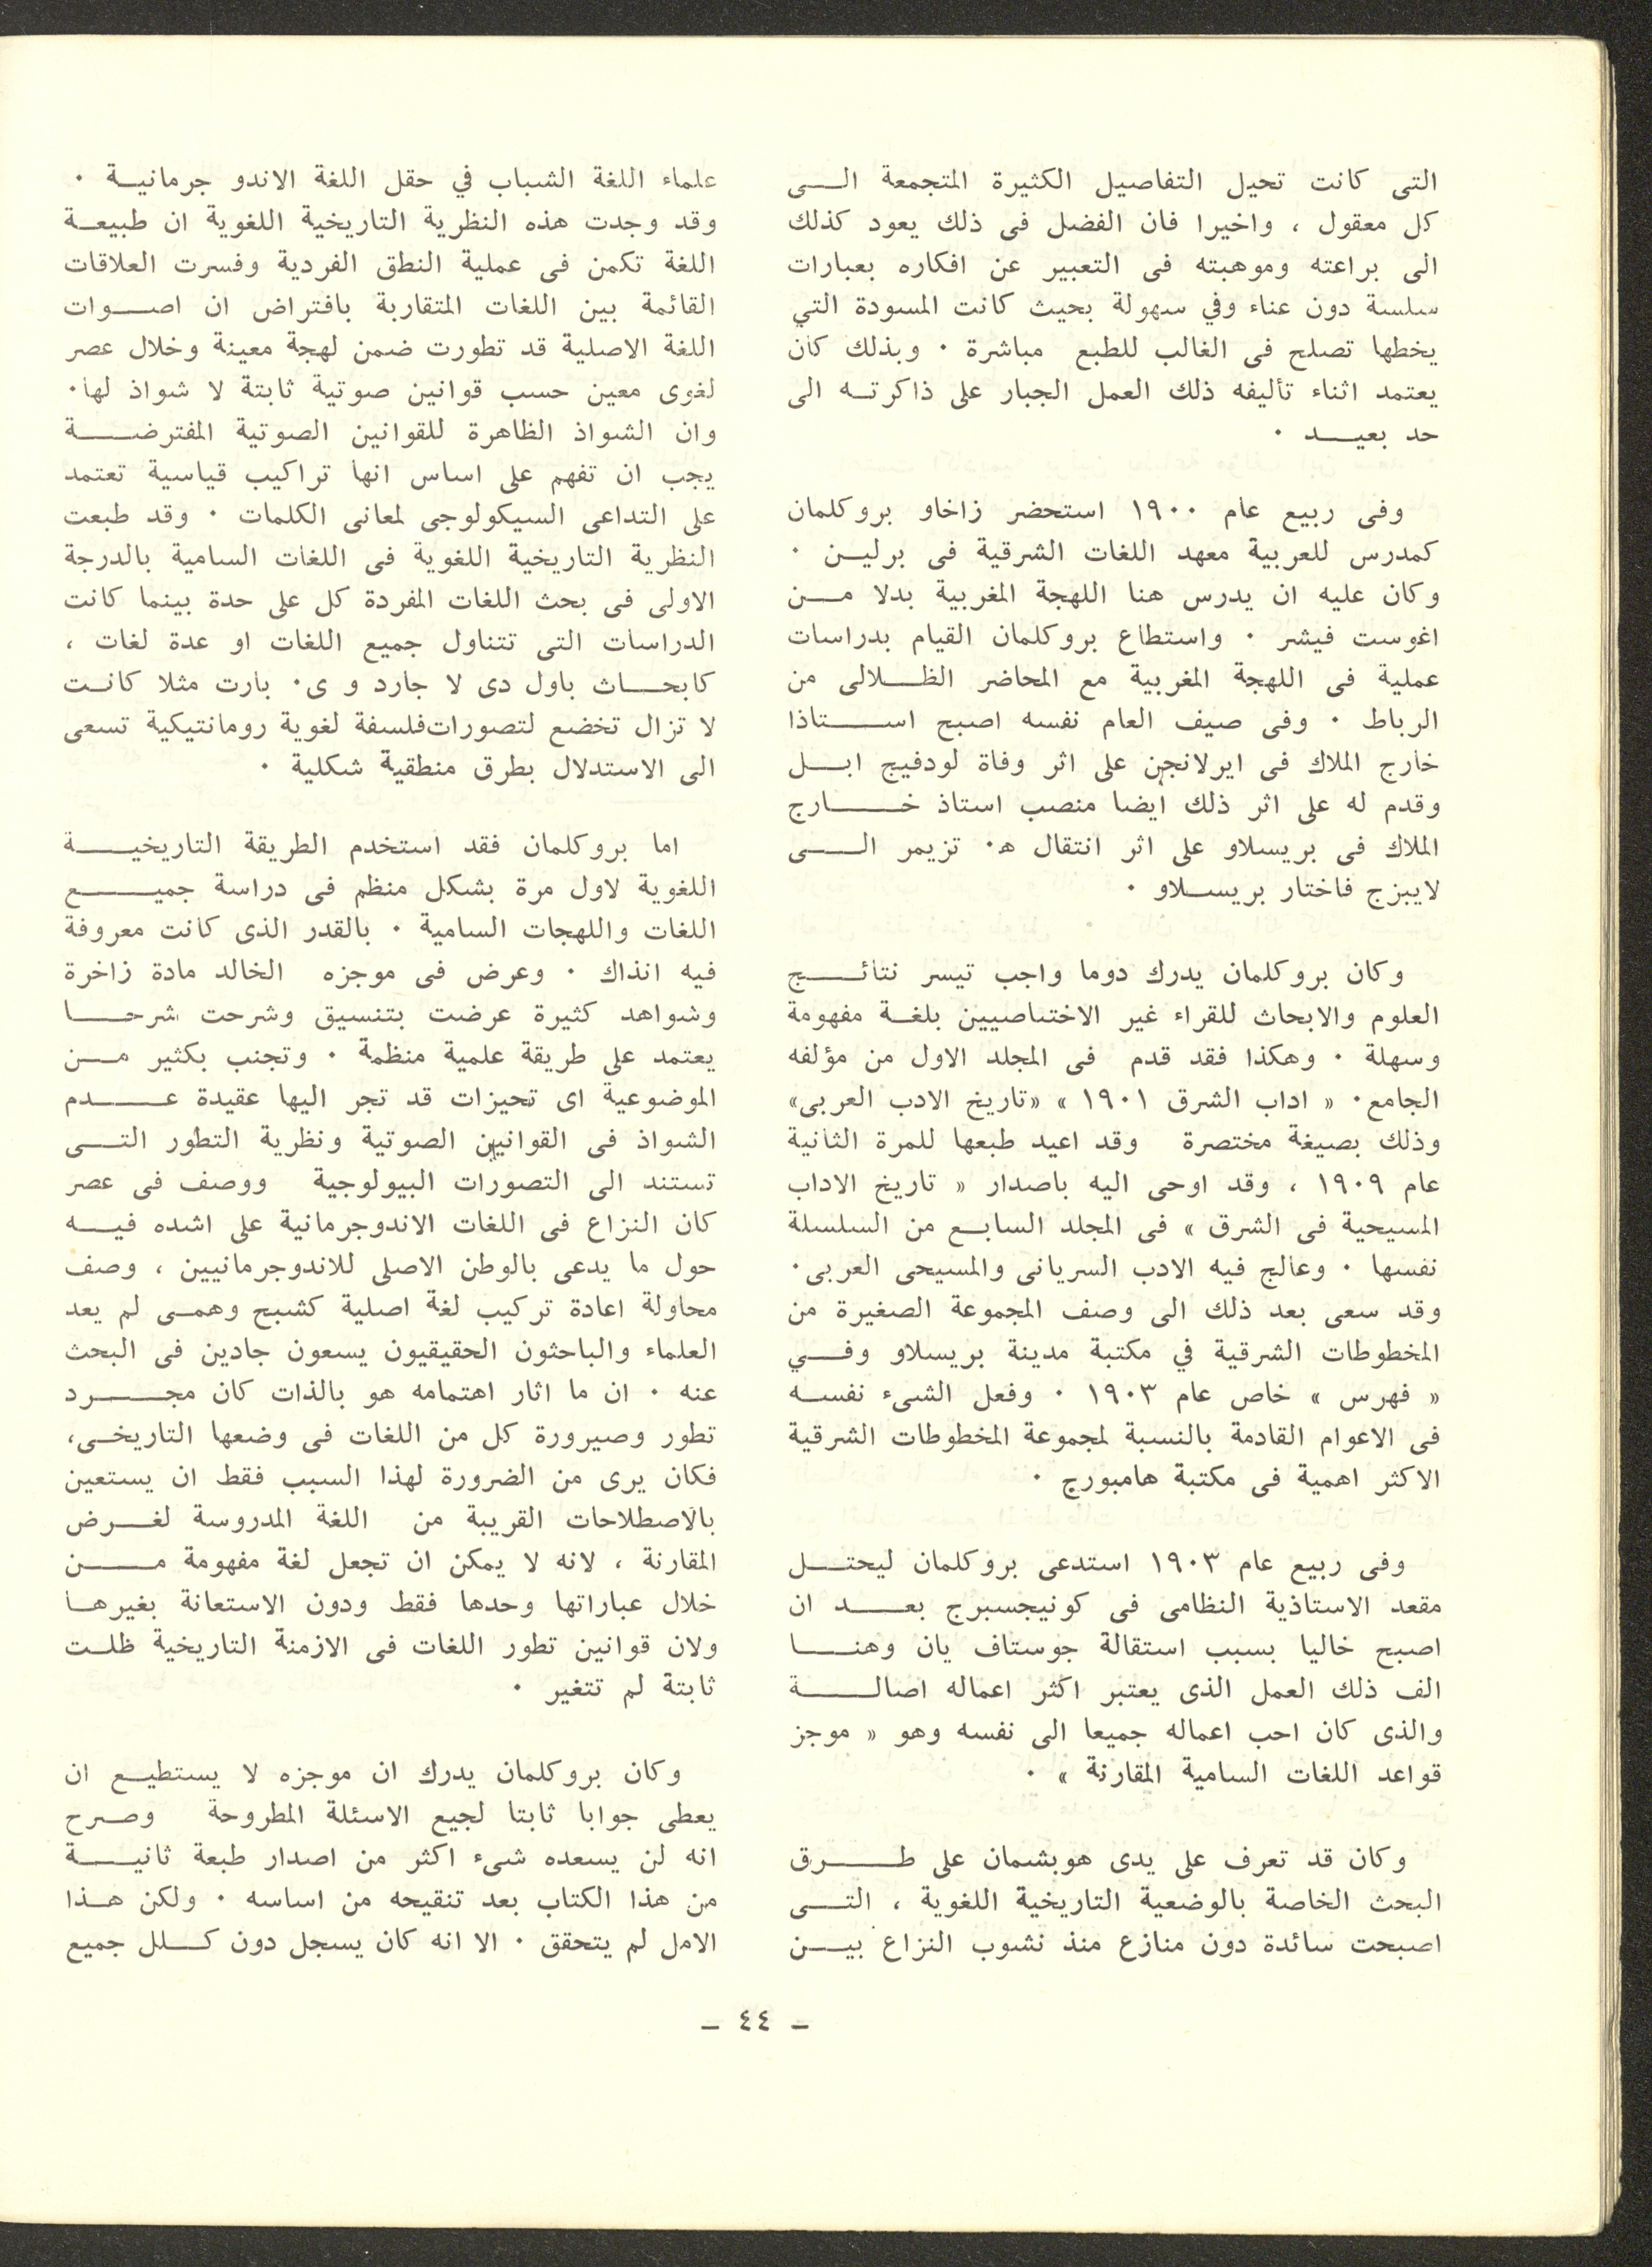 التى كانت تحيل التفاصيل الكثيرة المتجمعة الى
كل معقول ، واخيرا فان الفضل فى ذلك يعود كذلك
الى براعته وموهبته فى التعبير عن افكاره بعبارات
سلسة دون عناء وفي سهولة بحيث كانت المسودة التي
يخطها تصلح فى الغالب للطبع مباشرة . وبذلك كان
يعتمد اثناء تأليفه ذلك العمل الجبار على ذاكرته الى
حد بعيد .
وفى ربيع عام ١٩٠٠ استحضر زاخاو بروكلمان
كمدرس للعربية معهد اللغات الشرقية فى برلين .
وكان عليه ان يدرس هنا اللهجة المغربية بدلا من
اغوست فيشر . واستطاع بروكلمان القيام بدراسات
عملية فى اللهجة المغربية مع المحاضر الظلالى من
الرباط . وفى صيف العام نفسه اصبح استاذا
خارج الملاك فى ايرلانجين على اثر وفاة لودفيج ابل
وقدم له على اثر ذلك ايضا منصب استاذ خارج
الملاك فى بريسلاو على اثر انتقال ه. تزيمر الى
لايبزج فاختار بريسلاو .
وكان بروكلمان يدرك دوما واجب تيسر نتائج
العلوم والابحاث للقراء غير الاختصاصيين بلغة مفهومة
وسهلة . وهكذا فقد قدم فى المجلد الاول من مؤلفه
الجامع. « اداب الشرق ١٩٠١ » «تاريخ الادب العربى»
وذلك بصيغة مختصرة وقد اعيد طبعها للمرة الثانية
عام ١٩٠٩ ، وقد اوحى اليه باصدار « تاريخ الاداب
المسيحية فى الشرق » فى المجلد السابع من السلسلة
نفسها . وعالج فيه الادب السريانى والمسيحى العربى.
وقد سعى بعد ذلك الى وصف المجموعة الصغيرة من
المخطوطات الشرقية في مكتبة مدينة بريسلاو وفي
« فهرس » خاص عام ١٩٠٣ . وفعل الشىء نفسه
فى الاعوام القادمة بالنسبة لمجموعة المخطوطات الشرقية
الاكثر اهمية فى مكتبة هامبورج .
وفى ربيع عام ١٩٠٣ استدعى بروكلمان ليحتل
مقعد الاستاذية النظامى فى كونيجسبرج بعد ان
اصبح خاليا بسبب استقالة جوستاف يان وهنا
الف ذلك العمل الذى يعتبر اكثر اعماله اصالة
والذى كان احب اعماله جميعا الى نفسه وهو « موجز
قواعد اللغات السامية المقارنة » .
وكان قد تعرف على يدى هوبشمان على طرق
البحث الخاصة بالوضعية التاريخية اللغوية ، التى
اصبحت سائدة دون منازع منذ نشوب النزاع بين
علماء اللغة الشباب في حقل اللغة الاندو جرمانية .
وقد وجدت هذه النظرية التاريخية اللغوية ان طبيعة
اللغة تكمن فى عملية النطق الفردية وفسرت العلاقات
القائمة بين اللغات المتقاربة بافتراض ان اصوات
اللغة الاصلية قد تطورت ضمن لهجة معينة وخلال عصر
لغوى معين حسب قوانين صوتية ثابتة لا شواذ لها.
وان الشواذ الظاهرة للقوانين الصوتية المفترضة
يجب ان تفهم على اساس انها تراكيب قياسية تعتمد
على التداعى السيكولوجى لمعانى الكلمات . وقد طبعت
النظرية التاريخية اللغوية فى اللغات السامية بالدرجة
الاولى فى بحث اللغات المفردة كل على حدة بينما كانت
الدراسات التى تتناول جميع اللغات او عدة لغات ،
كابحاث باول دى لا جارد و ى. بارت مثلا كانت
لا تزال تخضع لتصورات فلسفة لغوية رومانتيكية تسعى
الى الاستدلال بطرق منطقية شكلية .
اما بروكلمان فقد استخدم الطريقة التاريخية
اللغوية لاول مرة بشكل منظم فى دراسة جميع
اللغات واللهجات السامية . بالقدر الذى كانت معروفة
فيه انذاك . وعرض فى موجزه الخالد مادة زاخرة
وشواهد كثيرة عرضت بتنسيق وشرحت شرحا
يعتمد على طريقة علمية منظمة . وتجنب بكثير من
الموضوعية اى تحيزات قد تجر اليها عقيدة عدم
الشواذ فى القوانين الصوتية ونظرية التطور التى
تستند الى التصورات البيولوجية ووصف فى عصر
كان النزاع فى اللغات الاندوجرمانية على اشده فيه
حول ما يدعى بالوطن الاصلى للاندوجرمانيين ، وصف
محاولة اعادة تركيب لغة اصلية كشبح وهمى لم يعد
العلماء والباحثون الحقيقيون يسعون جادين فى البحث
عنه . ان ما اثار اهتمامه هو بالذات كان مجرد
تطور وصيرورة كل من اللغات فى وضعها التاريخى،
فكان يرى من الضرورة لهذا السبب فقط ان يستعين
بالاصطلاحات القريبة من اللغة المدروسة لغرض
المقارنة ، لانه لا يمكن ان تجعل لغة مفهومة من
خلال عباراتها وحدها فقط ودون الاستعانة بغيرها
ولان قوانين تطور اللغات فى الازمنة التاريخية ظلت
ثابتة لم تتغير .
وكان بروكلمان يدرك ان موجزه لا يستطيع ان
يعطى جوابا ثابتا لجيع الاسئلة المطروحة وصرح
انه لن يسعده شىء اكثر من اصدار طبعة ثانية
من هذا الكتاب بعد تنقيحه من اساسه . ولكن هذا
الامل لم يتحقق . الا انه كان يسجل دون كلل جميع
ـ ٤٤ ـ